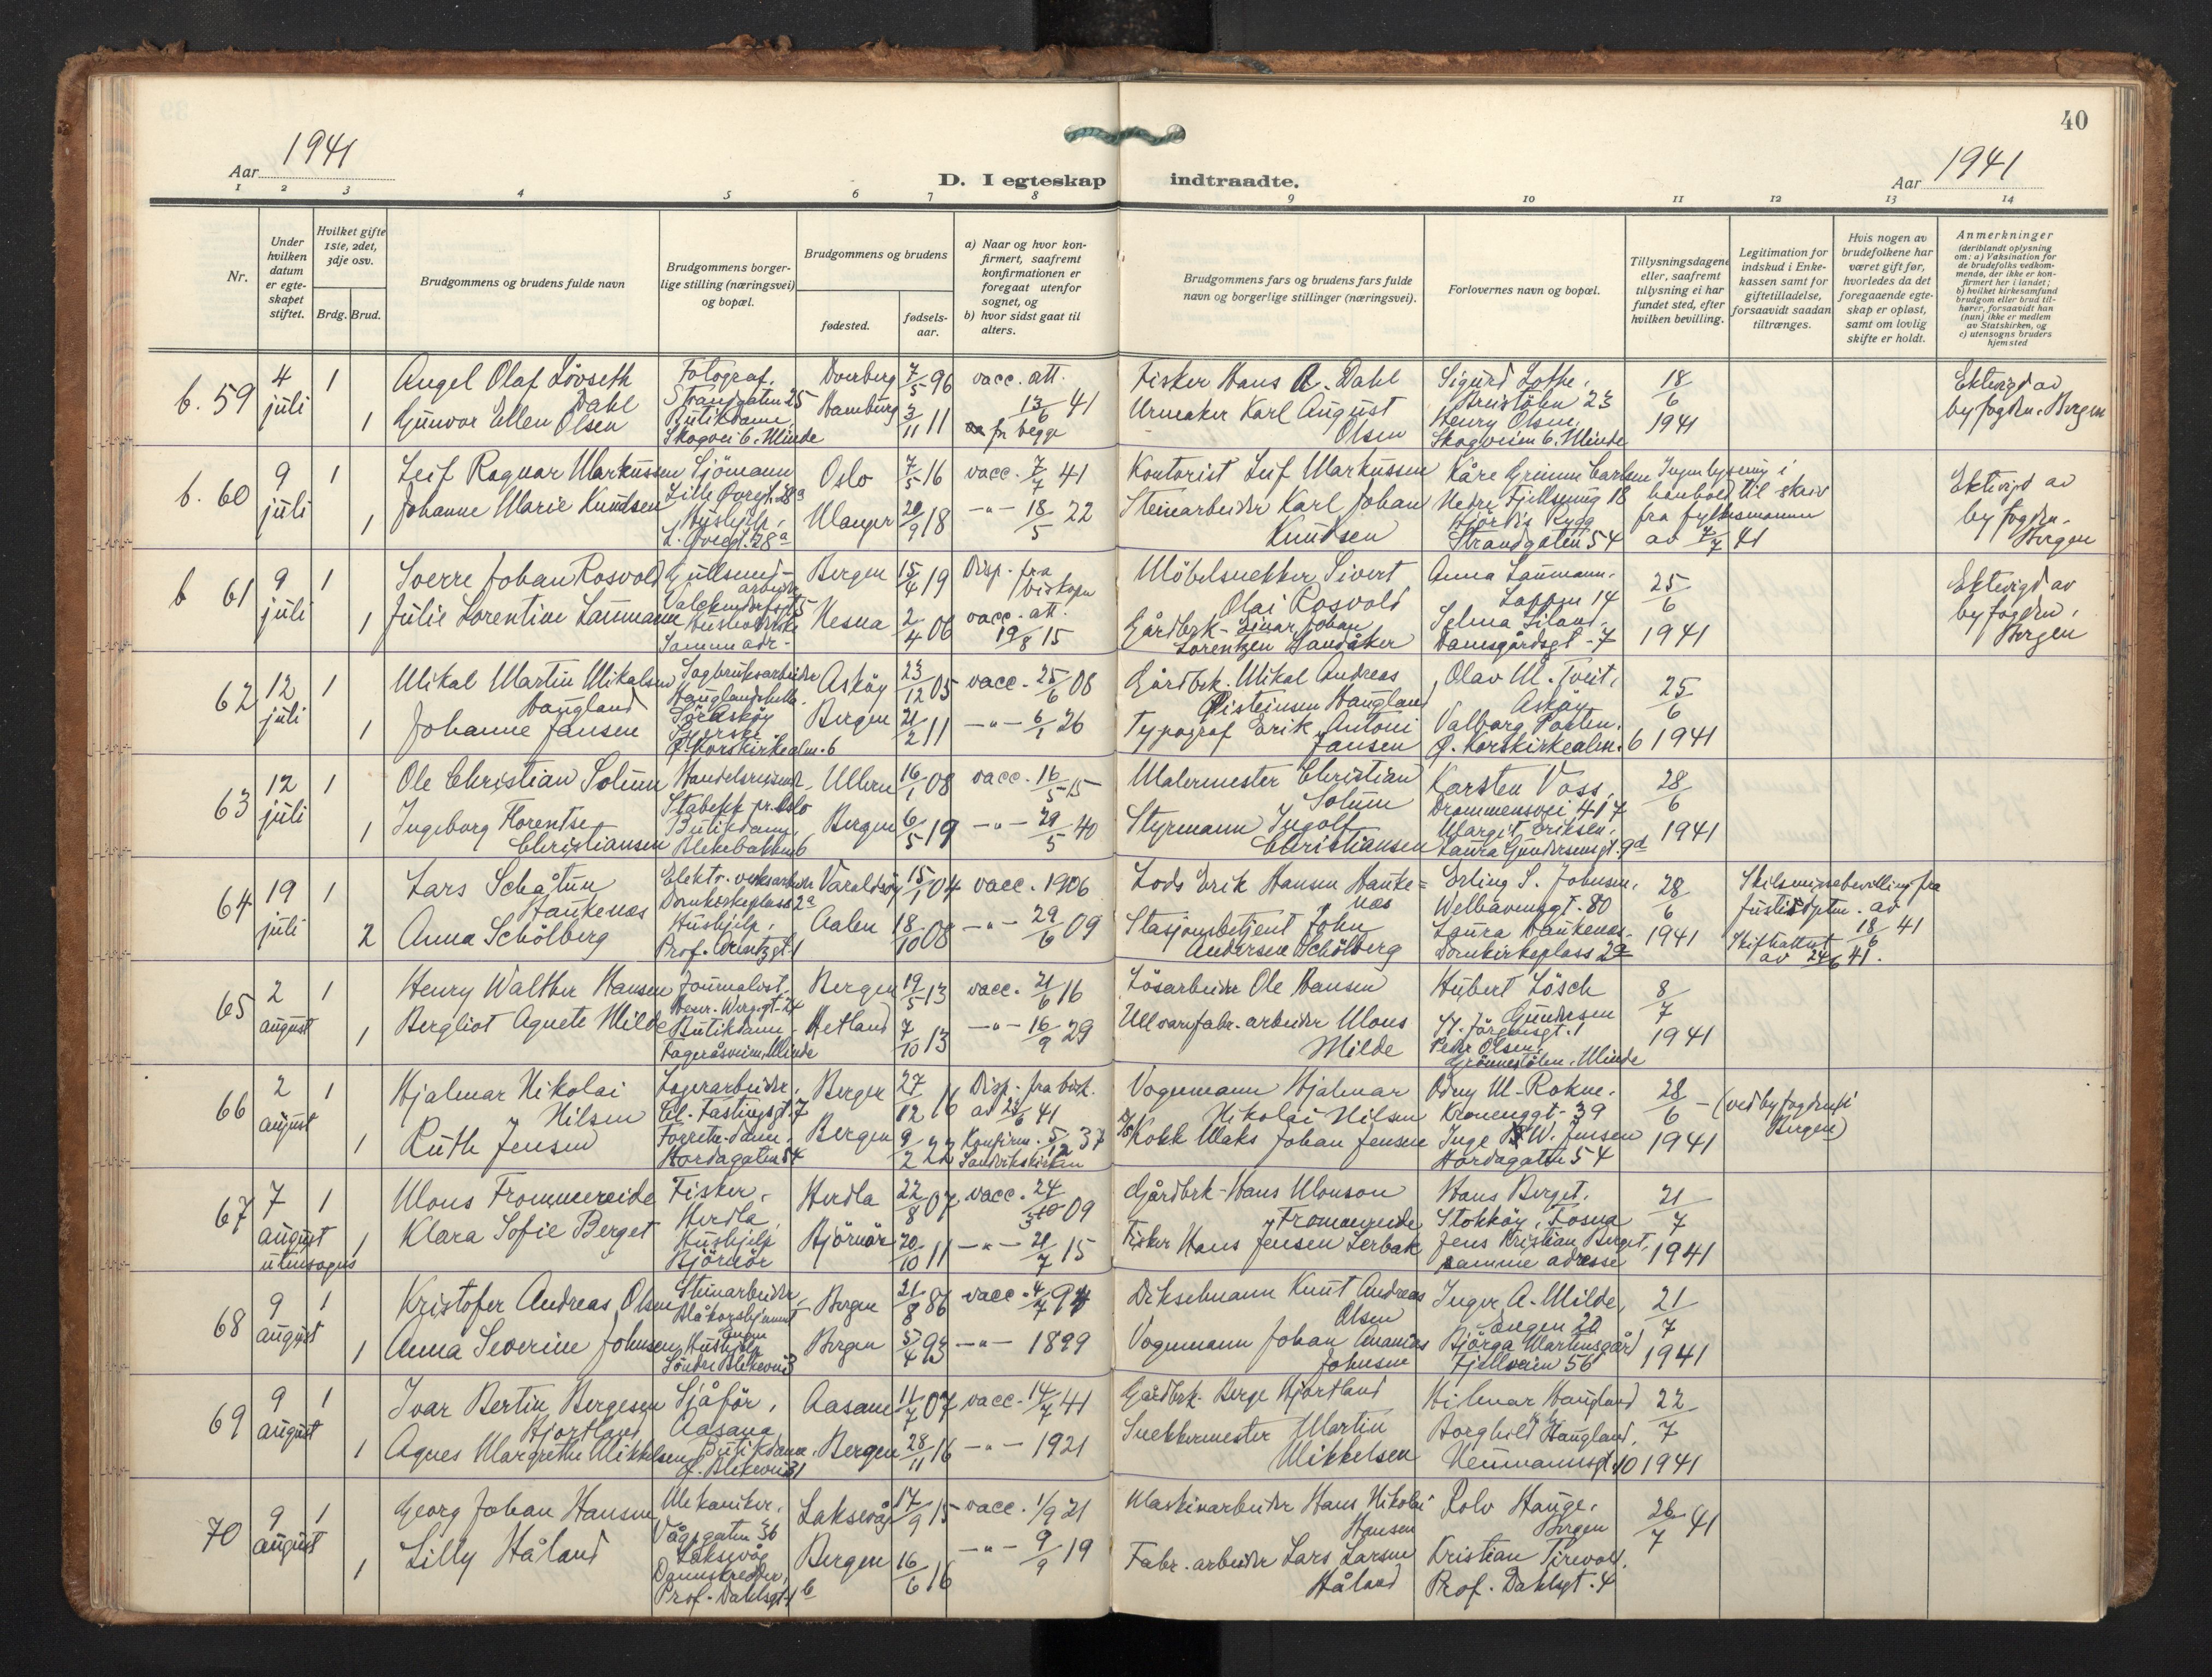 40
Aar 1941
D. I egteskap indtraadte.
Aar 1941
1 2 3 4 5 6 7 8 9 10 11 12 13 14
Nr.
Under hvilken datum er egteskapet stiftet.
Hvilket gifte 1ste, 2det, 3dje osv.
Brdg. Brud.
Brudgommens og brudens fulde navn
Brudgommens borgerlige stilling (næringsvei) og bopæl.
Brudgommens og brudens
fødested.
fødselsaar.
a) Naar og hvor konfirmert, saafremt konfirmationen er foregaat utenfor sognet, og
b) hvor sidst gaat til alters.
Brudgommens fars og brudens fars fulde navn og borgerlige stillinger (næringsvei).
Forlovernes navn og bopæl.
Tillysningsdagene eller, saafremt tillysning ei har fundet sted, efter hvilken bevilling.
Legitimation for indskud i Enkekassen samt for giftetilladelse, forsaavidt saadan tiltrænges.
Hvis nogen av brudefolkene har været gift før, hvorledes da det foregaaende egteskap er opløst, samt om lovlig skifte er holdt.
Anmerkninger
(deriblandt oplysning om: a) Vaksination for de brudefolks vedkommende, der ikke er konfirmert her i landet; b) hvilket kirkesamfund brudgom eller brud tilhører, forsaavidt han (hun) ikke er medlem av Statskirken, og c) utensogns bruders hjemsted
b. 59 4 juli 1 Angel Olaf Lövseth Dahl Fotograf, Strandgaten 25 Doerberg 7/5 96 vacc. att. 13/6 41 for begge Fisker Hans A. Dahl Sigurd Lothe, Breistölen 23 18/6 1941 Ektevigd av byfogden, Bergen
1 Gunvor Ellen Olsen Butikdame, Skogvei 6. Minde Hamburg 3/11 11 Urmaker Karl August Olsen Henry Olsen, Skogveien 6. Minde
b. 60 9 juli 1 Leif Ragnar Markussen Sjömann Lille Övregt. 28a Oslo 7/5 16 vacc. 7/7 41 Kontorist Leif Markussen Kåre Grimm Carlsen Nedre Fjellsmug 18 Ingen lysning i henhold til skriv fra fylkesmannen av 7/7 41 Ektevigd av byfogden. Bergen
1 Johanne Marie Knudsen Hushjelp, L. Övregt. 28a Manger 20/9 18 -"- 18/5 22 Steinarbeider Karl Johan Knudsen Hjördis Rygg Strandgaten 54
b 61 9 juli 1 Sverre Johan Rosvold Gullsmedarbeider Valckendorfsgt 5 Bergen 15/4 19 Disp. fra biskopen Möbelsnekker Sivert Olai Rosvold Anna Laumann. Loppen 14 25/6 1941 Ektevigd av byfogden, Bergen
1 Julie Lorentine Laumann Samme adr. Nesna 2/4 06 vacc. att. 19/8 15 Gårdbrk. Einar Johan Lorentzen Handåker Selma Siland. Damsgårdsgt. 7
62 12 juli 1 Mikal Martin Mikalsen Haugland Sagbruksarbeider Asköy 23/12 05 vacc. 25/6 08 Gårdbrk. Mikal Andreas Öisteinsen Haugland Olav M. Tveit, Asköy 25/6 1941
1 Johanne Jansen Ö. Korskirkealm. 6 Bergen 21/2 11 -"- 6/1 26 Typograf Erik Antoni Jansen Valborg Ö. Korskirkealm. 6
63 12 juli 1 Ole Christian Solum Handelsreisende, Stabekk pr. Oslo Ullern 16/1 08 vacc. 16/5 15 Malermester Christian Solum Karsten Voss, Drammensvei 417 28/6 1941
1 Ingeborg Florentse Christiansen Butikdame, Blekebakken 6 Bergen 6/5 19 -"- 29/5 40 Styrmann Ingolf Christiansen Margit Eriksen, Laura Gundersensgt. 9d
64 19 juli 1 Lars Schåtun Haukenæs Elektr. verksarbeider Domkirkeplass 2a Varaldsöy 15/1 04 vacc. 1906 Lods Erik Hansen Haukenæs Erling S. Johnsen, Welhavensgt. 80 28/6 1941 Skilsmissebevilling fra justisdptm. av 18/6 41 Skifteattest av 24/6 41.
2 Anna Schölberg Hushjelp, Prof. Arentzgt. 1 Aalen 18/10 08 -"- 29/6 09 Stasjonsbetjent John Andersen Schölberg Laura Haukenæs. Domkirkeplass 2a
65 2 august 1 Henry Walther Hansen Journalist, Henr. Werg.gt. 24 Bergen 19/5 13 vacc. 21/6 16 Lösarbeider Ole Hansen Hubert Lösch Gundersen St. Jörgensgt. 1 8/7 1941
1 Bergliot Agnete Milde Butikdame. Fageråsveien, Minde Hetland 7/10 13 -"- 16/9 29 Ullvarefabr. arbeider Mons Milde Peder Olsen, Grönnestölen, Minde
66 2 august 1 Hjalmar Nikolai Nilsen Lagerarbeider, Cl. Fastingsgt. 7 Bergen 27/12 16 Disp. fra bisk. av 41 Vognmann Hjalmar Nikolai Nilsen Odny M. Rokne. Kroneneggt. 39 28/6 1941 - (ved byfogden i Bergen)
1 Ruth Jensen Forretn. dame, Hordagaten 54 Bergen 9/2 22 Konfirm. 5/12 37 Sandvikskirken Kokk Maks Johan Jensen Inge W. Jensen Hordagaten 54
67 7 august utensogns 1 Mons Frommereide Fisker, Herdla Herdla 22/8 07 vacc. 24/10 09 Gårdbrk. Hans Monson Frommereide Hans Berget, Stokköy, Fosna 21/7 1941
1 Klara Sofie Berget Hushjelp Björnör Björnör 20/10 11 -"- 21/7 15 Fisker Hans Jensen Lerbak Jens Kristian Berget, samme adresse
68 9 august 1 Kristofer Andreas Olsen Steinarbeider, Blåkorshjemmet Bergen 21/8 86 vacc. 4/7 94 Dikselmann Knut Andreas Olsen Inger A. Milde, Engen 20 21/7 1941
1 Anna Severine Johnsen Hushjelp Söndre Blekevei 3 Bergen 5/4 93 -"- 1899 Vognmann Johan Ananias Johnsen Björga Martinsgård Fjellveien 56
69 9 august 1 Ivar Bertin Bergesen Hjortland Sjåför, Aasane Aasane 11/7 07 vacc. 14/7 41 Gårdbrk. Berge Hjortland Hilmar Haugland 22/7 1941
1 Agnes Margrethe Mikkelsen Butikdame. Blekevei 31 Bergen 28/11 16 -"- 1921 Snekkermester Martin Mikkelsen Borghild Haugland, Neumannsgt. 10
70 9 august 1 Georg Johan Hansen Mekaniker, Vågsgaten 36 Laksevåg Laksevåg 17/9 15 vacc. 1/9 21 Maskinarbeider Hans Nikolai Hansen Rolv Hauge. Bergen 26/7 41
1 Lilly Håland Dameskredder, Prof. Dahlsgt. Bergen 16/6 16 -"- 9/9 19 Fabr. arbeider Lars Larsen Håland Kristian Tirevold. Prof. Dahlsgt. 4